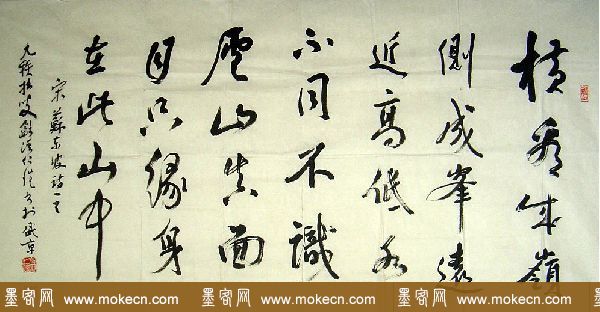 横看成嶺
側成峯遠
近高低各
不同不識
廬山真面
目只緣身
在此山中
宋蘇東坡詩一首
書於盛京
墨客网 www.mokecn.com 墨客网 www.mokecn.com 墨客网 www.mokecn.com